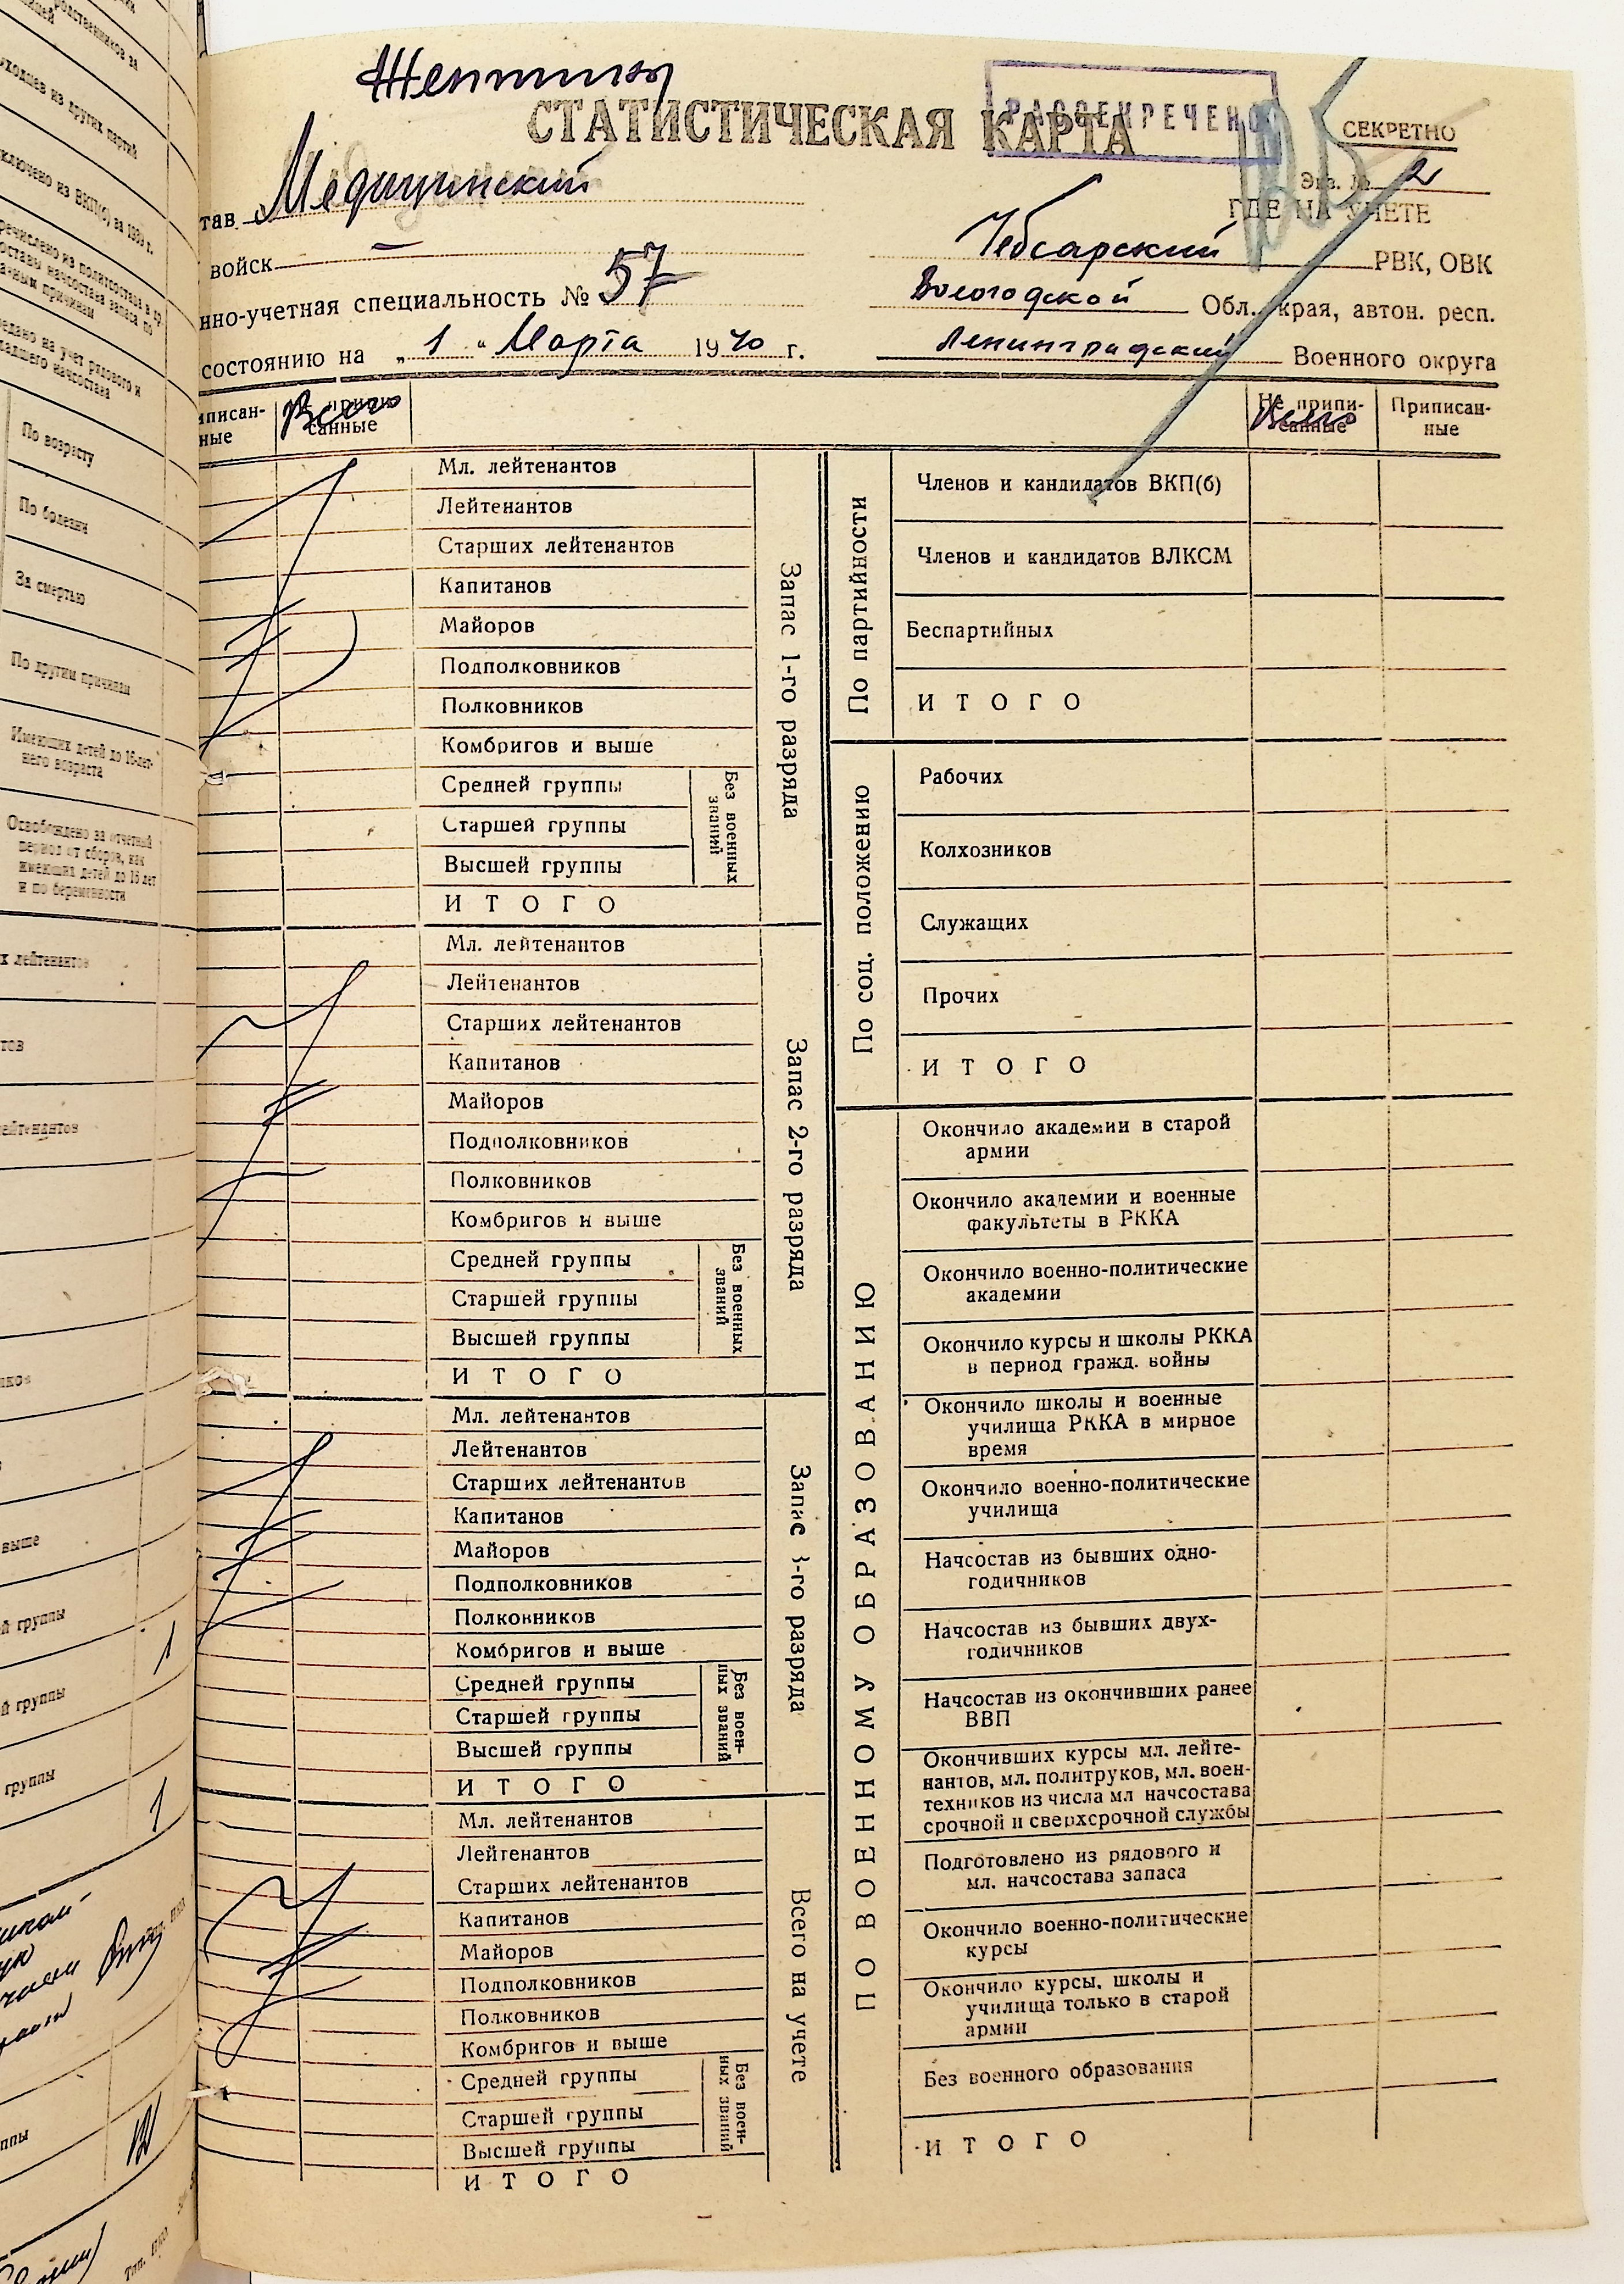 Женщины
СТАТИСТИЧЕСКАЯ КАРТА
РАССЕКРЕЧЕНО
СЕКРЕТНО
Экз. № 2
тав Медицинский
ГДЕ НА УЧЕТЕ
войск —
Чебсарский РВК, ОВК
нно-учетная специальность № 57
Вологодской Обл., края, автон. респ.
состоянию на „1“ Марта 1940 г.
Ленинградский Военного округа
иписан-
ные
Всего
санные
Не припи-
санные
Всего
Приписан-
ные
Запас 1-го разряда
Мл. лейтенантов
Лейтенантов
Старших лейтенантов
Капитанов
Майоров
Подполковников
Полковников
Комбригов и выше
Без военных
званий
Средней группы
Старшей группы
Высшей группы
ИТОГО
Запас 2-го разряда
Мл. лейтенантов
Лейтенантов
Старших лейтенантов
Капитанов
Майоров
Подполковников
Полковников
Комбригов и выше
Без военных
званий
Средней группы
Старшей группы
Высшей группы
ИТОГО
Запас 3-го разряда
Мл. лейтенантов
Лейтенантов
Старших лейтенантов
Капитанов
Майоров
Подполковников
Полковников
Комбригов и выше
Без воен-
ных званий
Средней группы
Старшей группы
Высшей группы
ИТОГО
Всего на учете
Мл. лейтенантов
Лейтенантов
Старших лейтенантов
Капитанов
Майоров
Подполковников
Полковников
Комбригов и выше
Без воен-
ных званий
Средней группы
Старшей группы
Высшей группы
ИТОГО
По партийности
Членов и кандидатов ВКП(б)
Членов и кандидатов ВЛКСМ
Беспартийных
ИТОГО
По соц. положению
Рабочих
Колхозников
Служащих
Прочих
ИТОГО
ПО ВОЕННОМУ ОБРАЗОВАНИЮ
Окончило академии в старой
армии
Окончило академии и военные
факультеты в РККА
Окончило военно-политические
академии
Окончило курсы и школы РККА
в период гражд. войны
Окончило школы и военные
училища РККА в мирное
время
Окончило военно-политические
училища
Начсостав из бывших одно-
годичников
Начсостав из бывших двух-
годичников
Начсостав из окончивших ранее
ВВП
Окончивших курсы мл. лейте-
нантов, мл. политруков, мл. воен-
техников из числа мл начсостава
срочной и сверхсрочной службы
Подготовлено из рядового и
мл. начсостава запаса
Окончило военно-политические
курсы
Окончило курсы, школы и
училища только в старой
армии
Без военного образования
ИТОГО
По возрасту
По болезни
За смертью
По другим причинам
Имеющих детей до 16-лет-
него возраста
Освобождено за отчетный
период от сборов, как
имеющих детей до 16 лет
и по беременности
х лейтенантов
тов
ейтенантов
ников
выше
й группы 1
й группы
группы 1
ппы